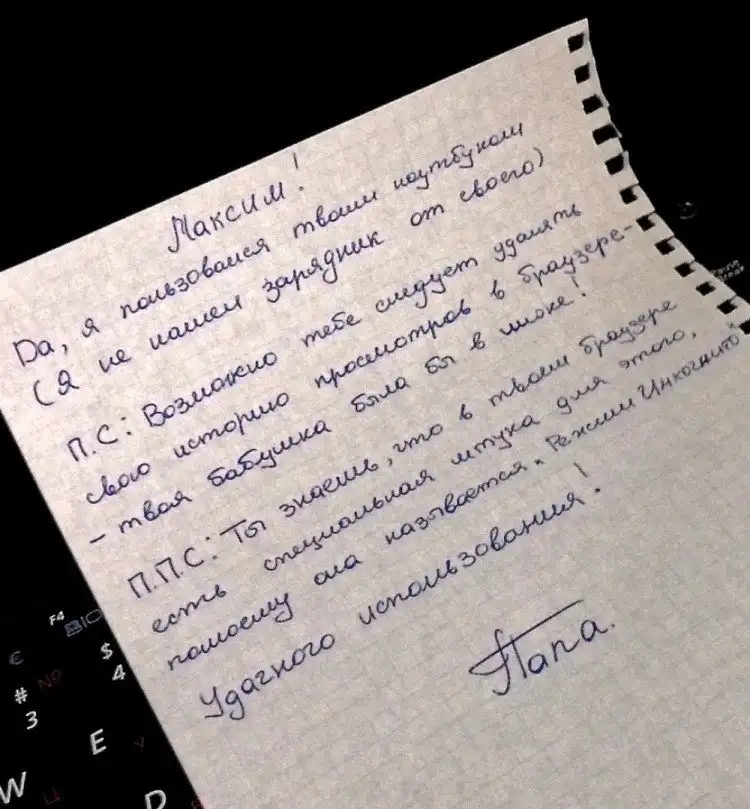 Максим!
Да, я пользовался твоим ноутбуком
(Я не нашел зарядник от своего)
П.С: Возможно тебе следует удалять
свою историю просмотров в браузере-
- твоя бабушка была бы в шоке!
П.П.С: Ты знаешь, что в твоем браузере
есть специальная штука для этого,
помоему она называется „Режим Инкогнито"
Удачного использования!
Папа.
F4
€
$
4
#
3
W
E
D
Ц
У
Pause
Break